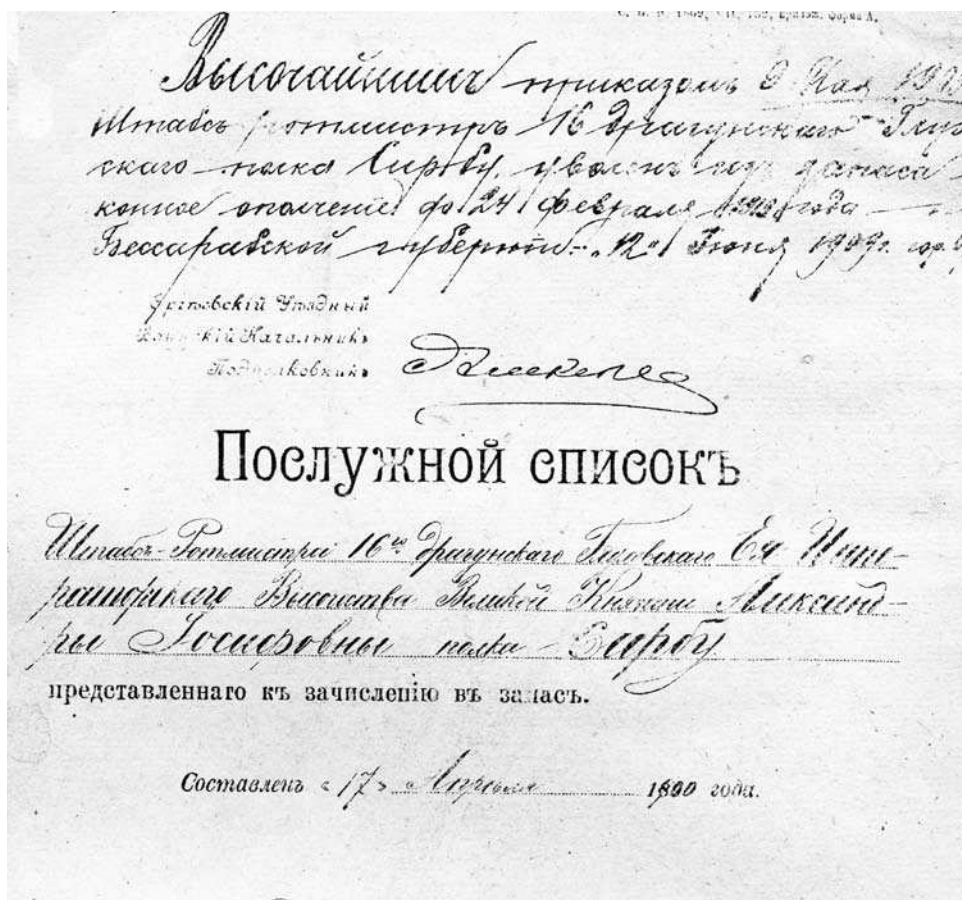 Высочайшимъ приказомъ 9 Мая 190
Штабсъ ротмистръ 16 драгунскаго Глух
скаго полка Сырбу, уволенъ изъ запаса
конное ополченіе до 24 февраля года
Бессарабской губерніи. „12" Іюня 1909 г. гор.
Оргѣевскій Уѣздный
Воинскій Начальникъ
Подполковникъ
Послужной списокъ
Штабсъ-Ротмистра 16го Драгунскаго Глуховскаго Ея Импе-
раторскаго Высочества Великой Княгини Александ-
ры Іосифовны полка Сырбу
представленнаго къ зачисленію въ запасъ.
Составленъ «17» Апрѣля 1890 года.